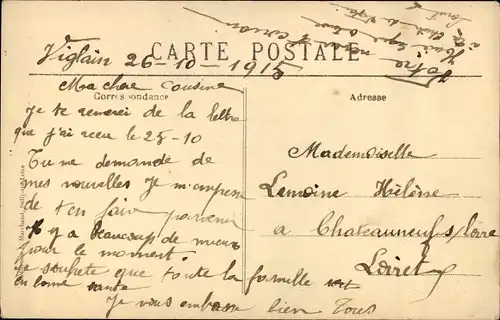 Viglain 26-10-1915
CARTE POSTALE
Correspondance
Adresse
Ma chere Cousine
Je te remerci de la lettre
que j'ai recu le 25-10
Tu me demande de
mes nouvelles Je m'empesse
de t'en faire parvenir
Il y a beaucoup de mieux
pour le moment.
Je souhete que toute la famille soit
en bonne santé
Je vous embrasse bien Tous
Mademoiselle
Lemoine Hélène
a Chateauneuf s/Loire
Loiret